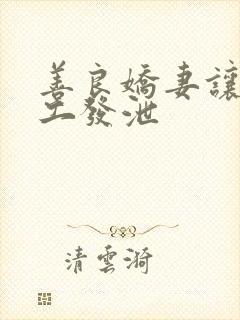 善良嬌妻讓
工發泄
清雲漪